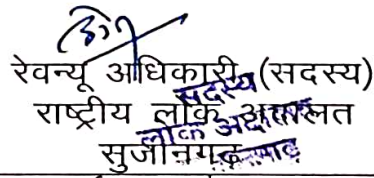 रेवन्यू अधिकारी (सदस्य)
राष्ट्रीय लोक अदालत
सुजानगढ़
सदस्य
लोक अदालत